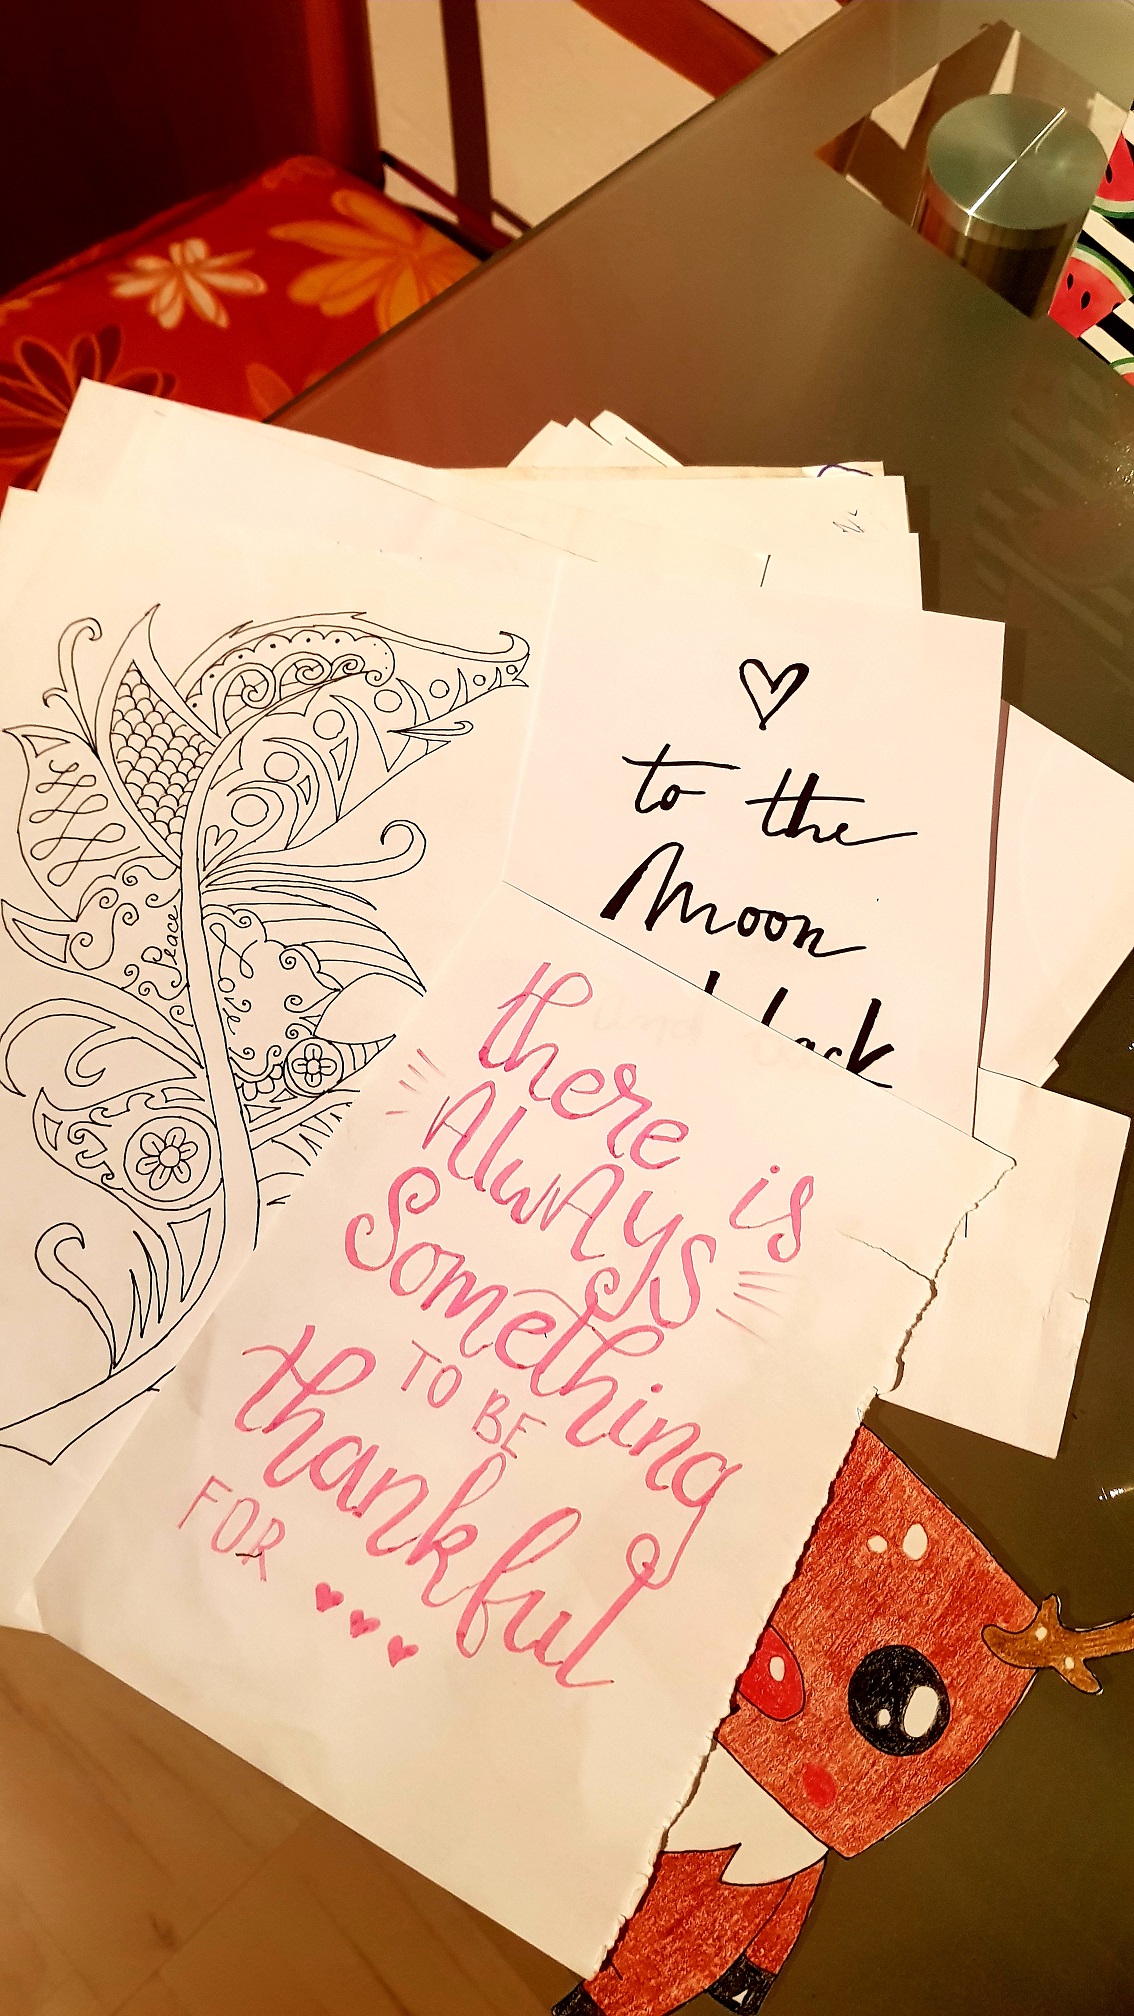 Peace
Love
to the
Moon
back
there is
AlwAys
Something
TO BE
thankful
FOR